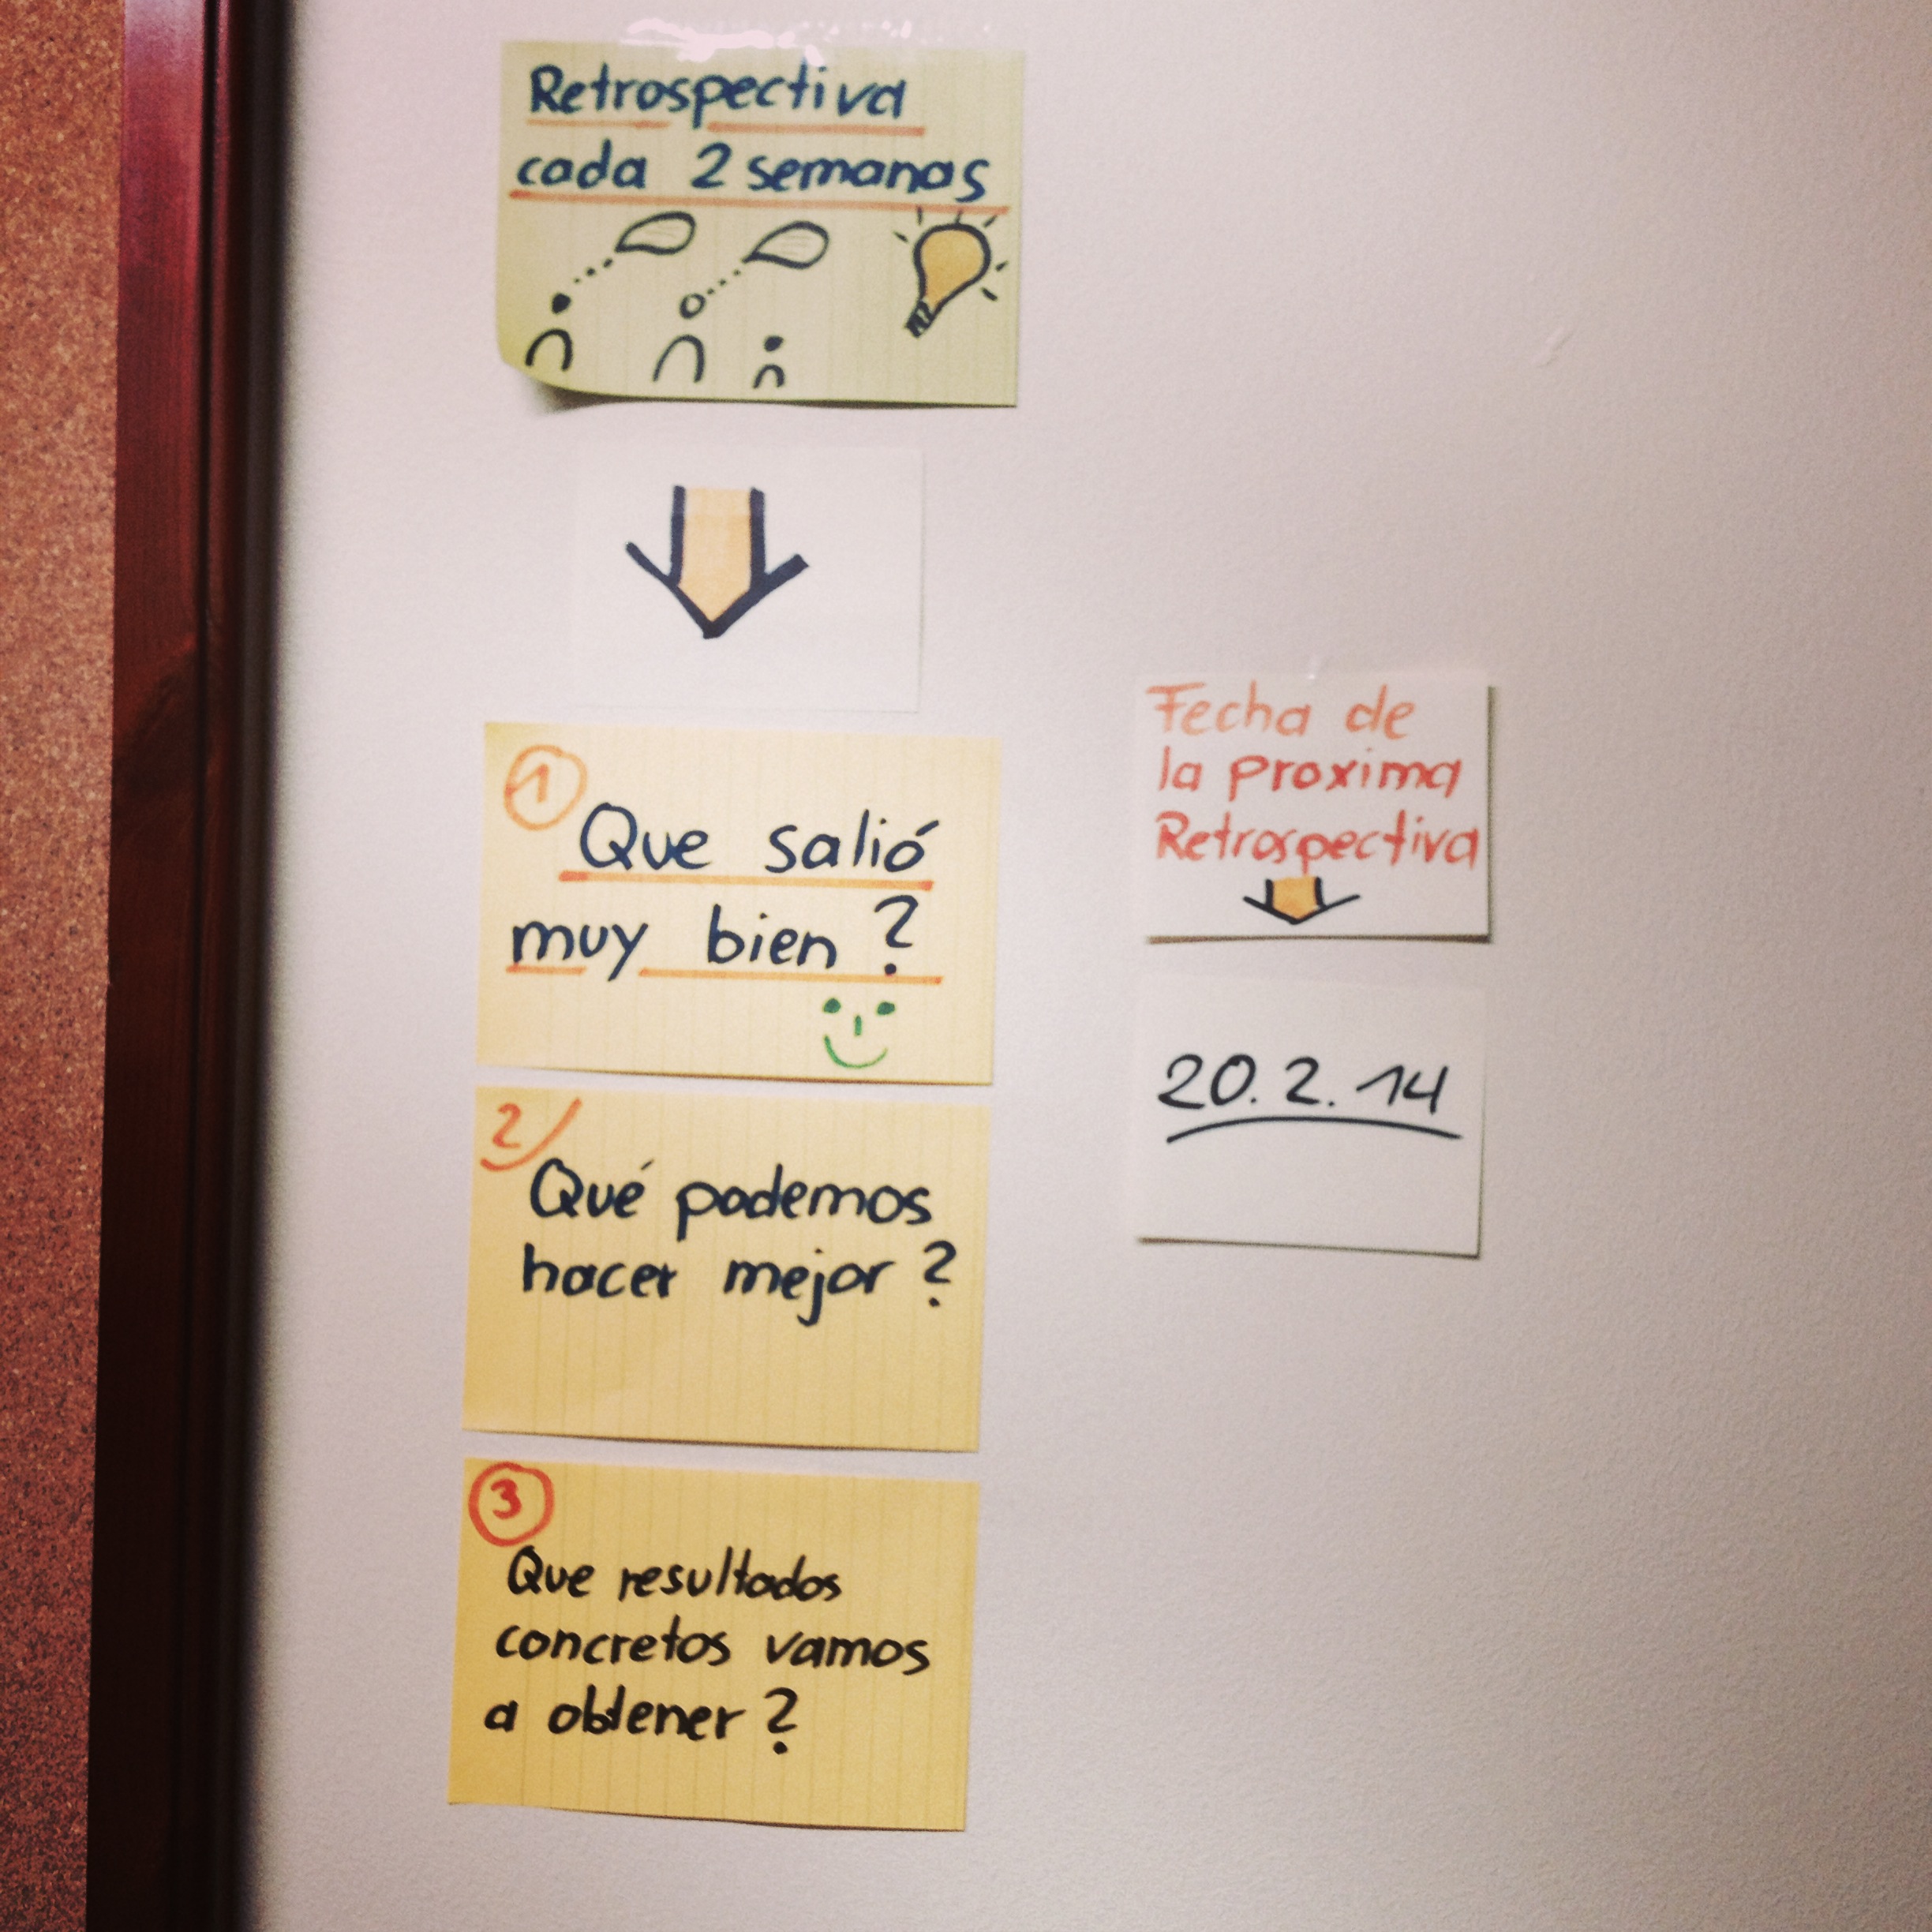 Retrospectiva
cada 2 semanas
1
Que salió
muy bien ?
2
Qué podemos
hacer mejor ?
3
Que resultados
concretos vamos
a obtener ?
Fecha de
la proxima
Retrospectiva
20. 2. 14